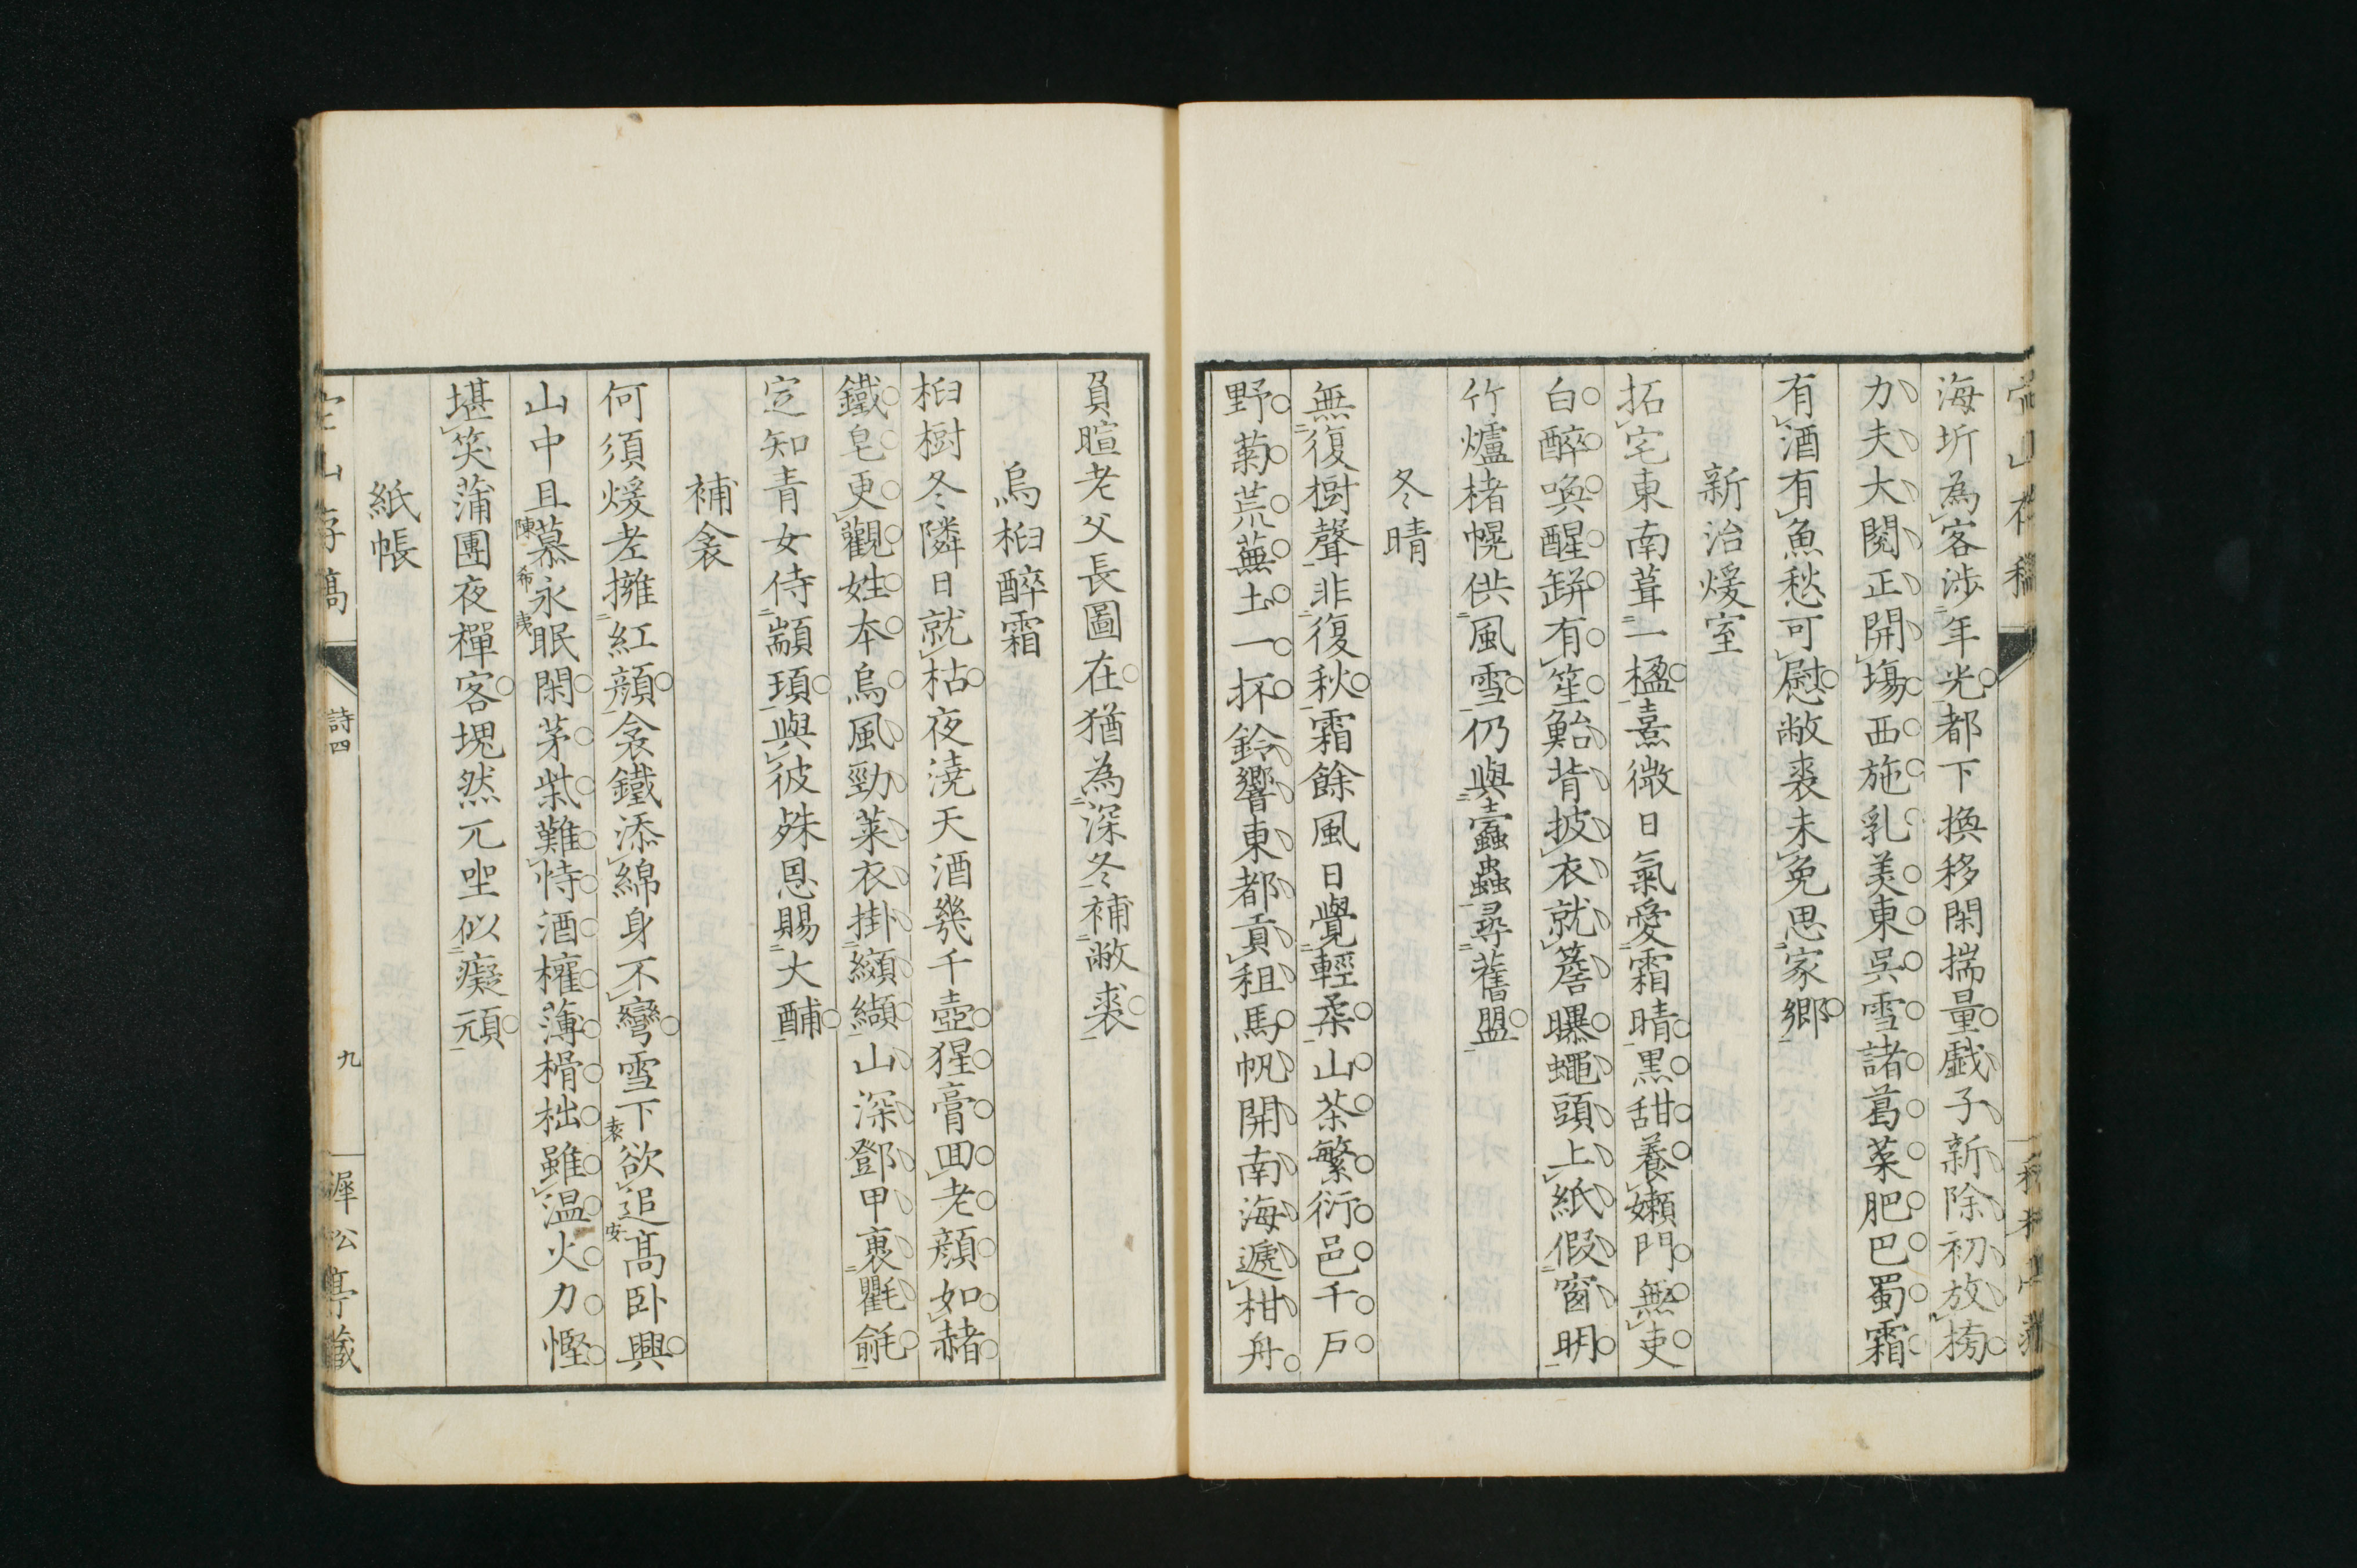 海圻為客涉年光都下換移閑揣量戯子新除初放榜
力夫大鬨正開塲西施乳美東呉雪諸葛菜肥巴蜀霜
有酒有魚愁可慰敝裘未免思家郷
新治煖室
拓宅東南葺一楹熹微日氣愛霜晴黒甜養嬾門無吏
白醉喚醒缾有笙鮐背披衣就簷曝蠅頭上紙假窗明
竹爐楮幌供風雪仍與蠧蟲尋舊盟
冬晴
無復樹聲非復秋霜餘風日覺輕柔山茶繁衍邑千戸
野菊荒蕪土一抔鈴響東都貢租馬帆開南海遞柑舟
負暄老父長圖在猶為深冬補敝裘
烏桕醉霜
桕樹冬隣日就枯夜澆天酒幾千壺猩膏囬老顔如赭
鐵皂更觀姓本烏風勁萊衣掛纐纈山深鄧甲裹氍毹
定知青女侍顓頊與彼殊恩賜大酺
補衾
何須煖老擁紅顔衾鐵添綿身不彎雪下欲追髙卧興
袁安
山中且慕永眠閑茅紫難恃酒權薄榾柮雖温火力慳
陳希夷
堪笑蒲團夜禪客塊然兀坐似癡頑
紙帳
山存稿
詩四
九
犀公亭藏